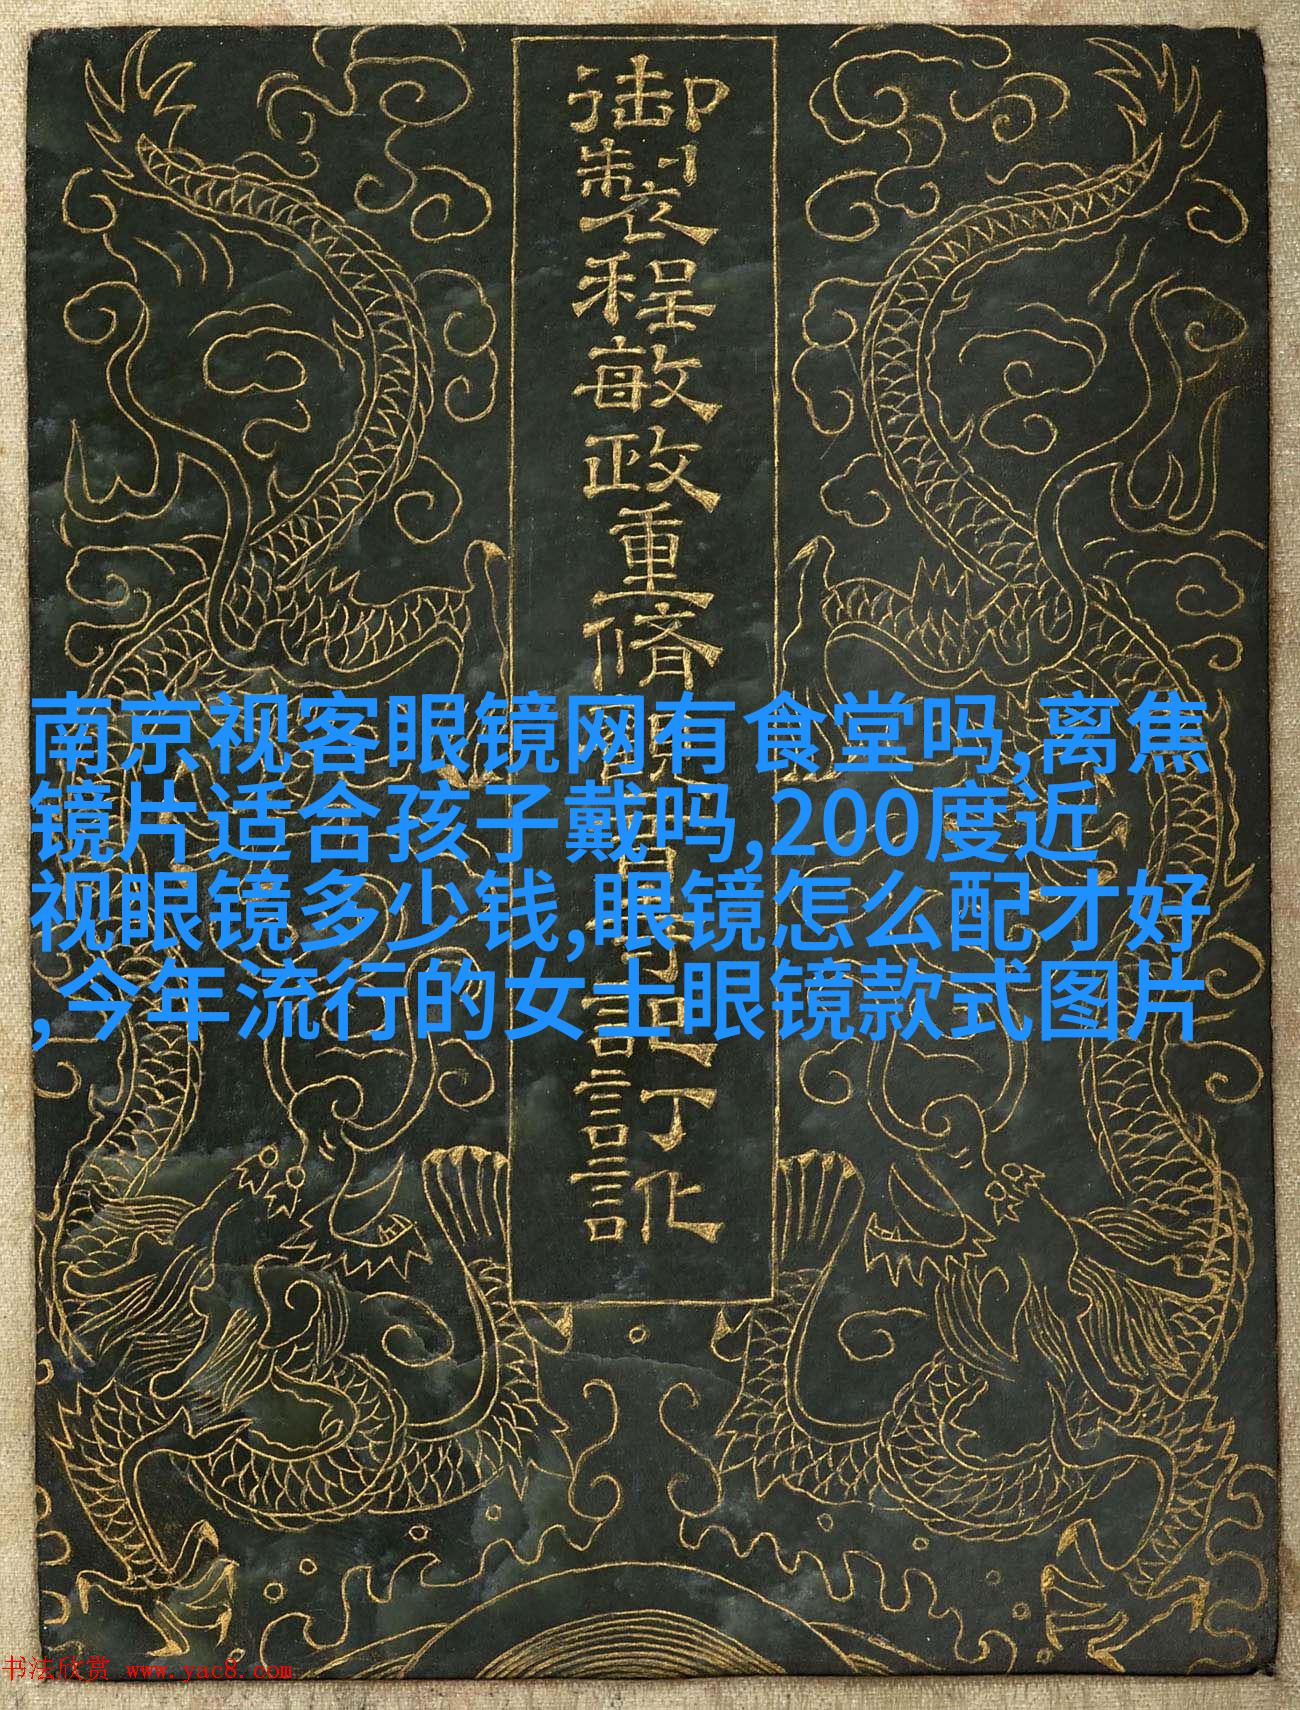 御製程敏政重脩
訂訛
南京视客眼镜网有食堂吗,离焦
镜片适合孩子戴吗,200度近
视眼镜多少钱,眼镜怎么配才好
,今年流行的女士眼镜款式图片
书法欣赏 www.yac8.com